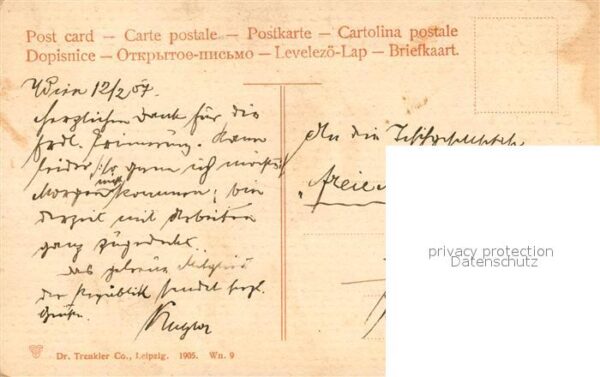 Post card – Carte postale – Postkarte – Cartolina postale
Dopisnice – Открытое-письмо – Levelező-Lap – Briefkaart.
Wien 12/2 07.
Herzlichen Dank für die
frdl. Erinnerung. Kann
leider so gern ich möchte
Morgen nicht kommen; bin
derzeit mit Arbeiten
ganz zugedeckt.
Das getreue Mitglied
der Republik sendet herzl.
Grüße
An die
"freie
privacy protection
Datenschutz
Dr. Trenkler Co., Leipzig. 1905. Wn. 9